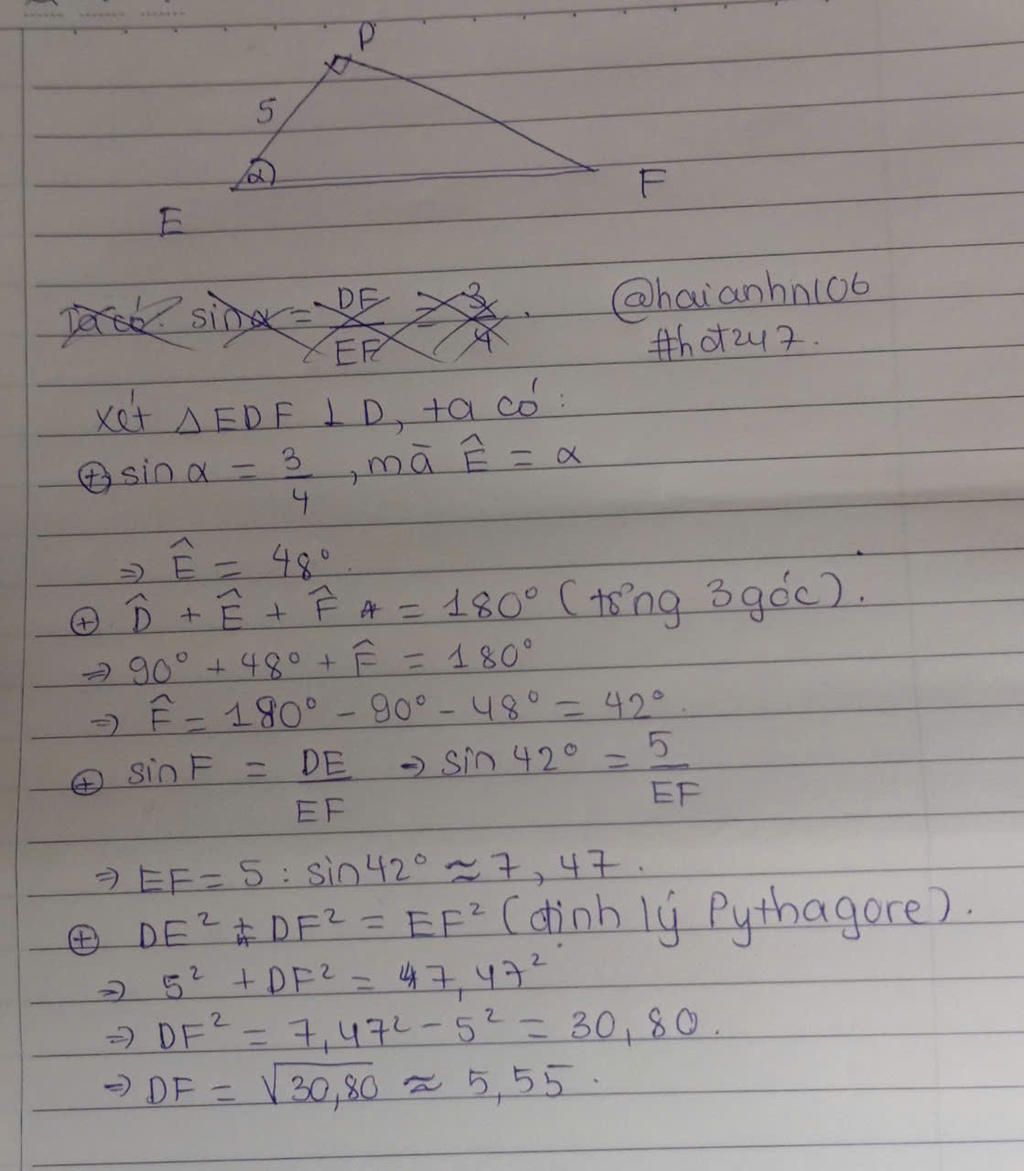 D
5
α
E
F
Ta có: sin α = DF/EF = 3/4.
@haianhn106
#hot247.
xét △EDF ⊥ D, ta có:
⊕ sin α = 3/4, mà Ê = α
⇒ Ê = 48°.
⊕ D̂ + Ê + F̂ = 180° (tổng 3 góc).
⇒ 90° + 48° + F̂ = 180°
⇒ F̂ = 180° - 90° - 48° = 42°.
⊕ sin F = DE/EF → sin 42° = 5/EF
⇒ EF = 5 : sin 42° ≈ 7,47.
⊕ DE² + DF² = EF² (định lý Pythagore).
⇒ 5² + DF² = 7,47²
⇒ DF² = 7,47² - 5² = 30,80.
⇒ DF = √30,80 ≈ 5,55.